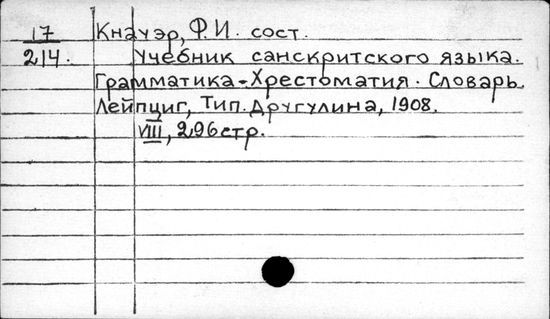 17 Кнауэр, Ф.И. сост.
214. Учебник санскритского языка.
Грамматика-Хрестоматия. Словарь.
Лейпциг, Тип. Другулина, 1908.
VIII, 296 стр.